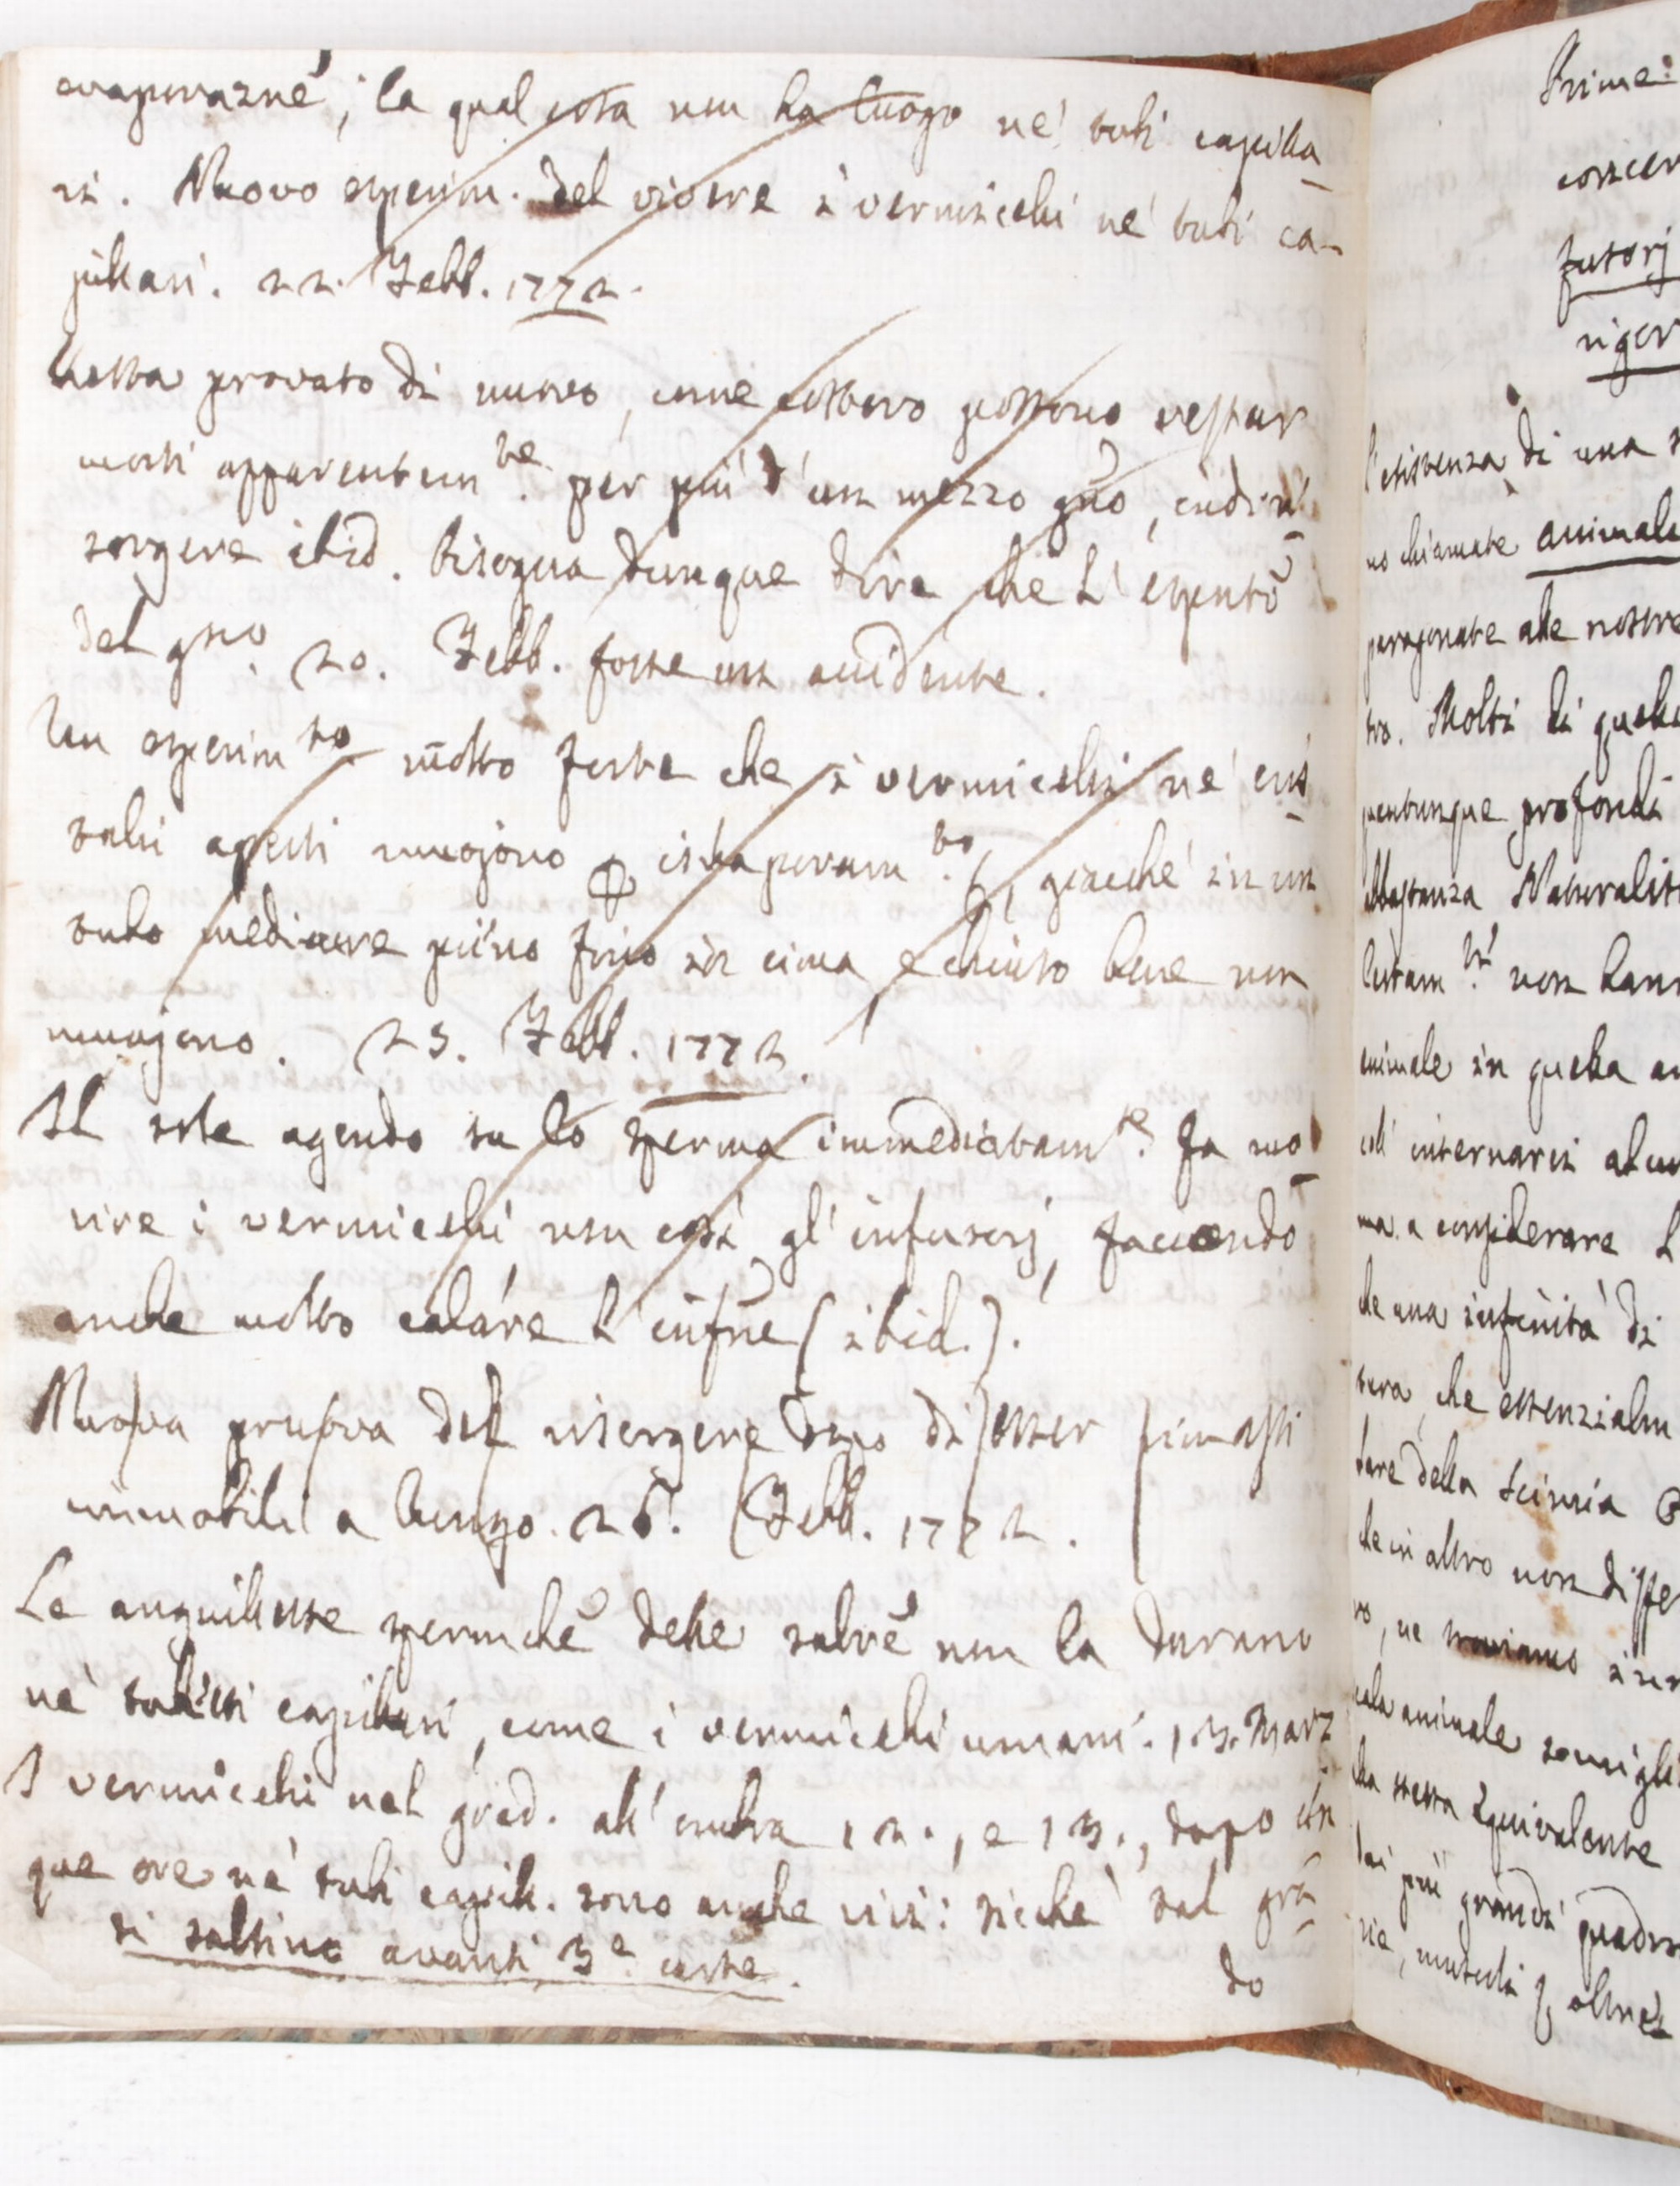 evaporazne, la qual cosa non ha luogo ne' tubi capilla
ri. Nuovo sperim. del vivere i vermicelli ne' tubi ca-
pillari. 22. Febb. 1772.
provato di nuovo, come costoro possono restar
morti apparentem.te per più d'un mezzo gno, indi ri
sorgere ibid. Bisogna dunque dire che l'espento
del gno. 20. Febb. fosse un accidente.
Un esperim.to molto forte che i vermicelli ne' cris
talli aperti muojono svaporam.to, giacchè in un
tubo mediocre pieno fino in cima e chiuso bene non
muojono. 23. Febb. 1772.
Il sole agendo su lo sperma immediatam.te fa mo
rire i vermicelli, non così gl'infusorj, facendo
anche molto calare l'infne (ibid.).
Nuova pruova del risorgere dopo di esser rimasti
immobili a lungo. 26. Febb. 1772.
Le anguillette spermche delle salre non la durano
ne' tubetti capillari, come i vermicelli umani. 13. Marz
I vermicelli nel grad. all'ombra 12., e 13., dopo cin
que ore ne' tubi capill. sono anche vivi: sicchè sul gra
do
si saltino avanti 3e carte.
Prime
concer
futorj
riger
l'esistenza di una
no chiamate animale
paragonate alle nostre
tro. Molti di quelli
quantunque profondi
abbastanza Naturalist
non hann
animale in quella
internarsi alcun
ma a considerare l
che una infinità di
tura, che essenzialm
tare della scimia
che in altro non differ
ro, ne
scala animale somigli
lla stessa equivalente
dai più grandi quadru